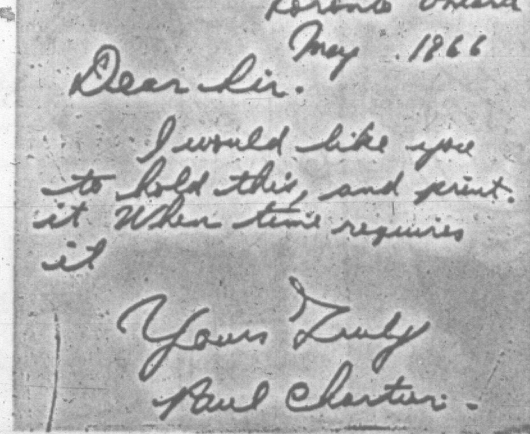 Toronto Ontario
May . 1866
Dear Sir.
I would like you
to hold this, and print.
it When time requires
it
Yours Truly
Paul Chartier.